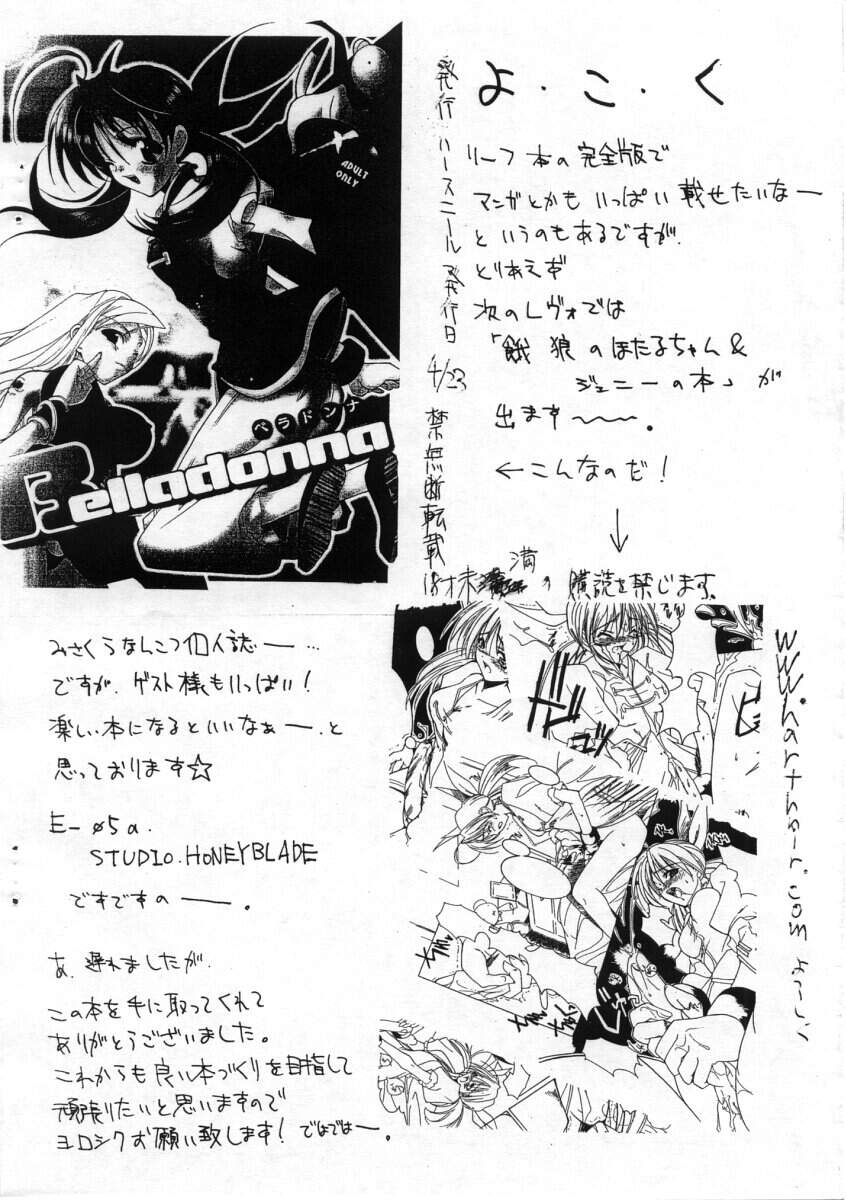 よ・こ・く
リーフ本の完全版で
マンガとかもいっぱい載せたいなー
というのもあるですが、
とりあえず
次のレヴォでは
「餓狼のほたるちゃん&
ジェニーの本」が
出ます〜〜。
←こんなのだ!
↓
発行 ハースニール 発行日 4/23 禁無断転載
18才未満の購読を禁じます。
ADULT
ONLY
ベラドンナ
Belladonna
みさくらなんこつ個人誌ー…
ですが、ゲスト様もいっぱい!
楽しい本になるといいなぁー、と
思っております☆
E-05a
STUDIO.HONEYBLADE
ですですのーー。
あ、遅れましたが、
この本を手に取ってくれて
ありがとうございました。
これからも良い本づくりを目指して
頑張りたいと思いますので
ヨロシクお願い致します!ではではー。